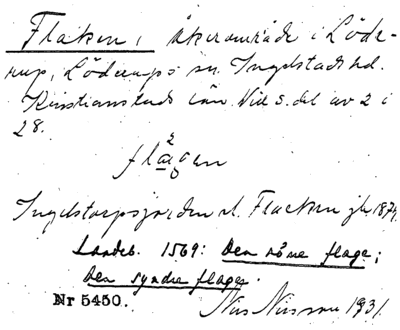 Flaken, åkerområde i Löde-
rup, Löderups sn. Ingelstads hd.
Kristianstads län. Vid s. del av 2 i
28.
flågen
Ingelstorpsjorden el. Flacken jb. 1874.
Landeb. 1569: Den nörre flage;
Den syndre flage.
Nr 5450. Nils Nilsson 1931.